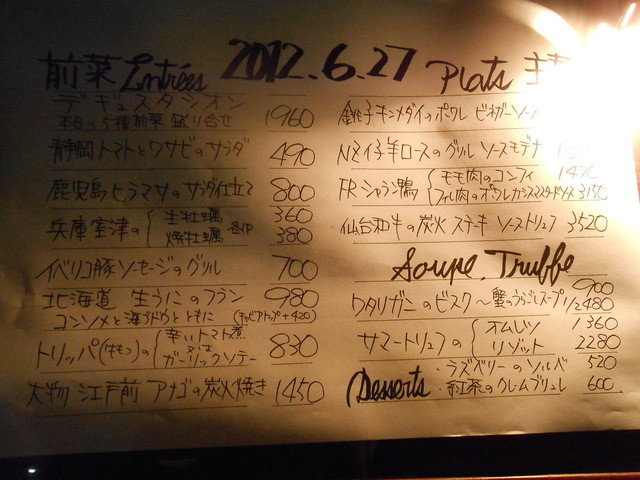 2012.6.27
前菜 Entrées
デギュスタシオン
本日の5種前菜盛り合せ 1960
静岡トマトとワサビのサラダ 490
鹿児島ヒラマサのサラダ仕立て 800
兵庫室津の
生牡蠣 360
焼牡蠣 各1P 380
イベリコ豚ソーセージのグリル 700
北海道 生うにのフラン 980
コンソメと海ブドウとともに (キャビアトップ+420)
トリッパ(ホルモン)の 830
辛いトマト煮
又は
ガーリックソテー
大物 江戸前 アナゴの炭火焼き 1450
Plats 主
銚子キンメダイのポワレ ビネガーソース
NZ仔羊ロースのグリル ソースモデナ
FRシャラン鴨
モモ肉のコンフィ 1470
フィレ肉のポワレカシスマスタードソース 3150
仙台和牛の炭火ステーキ ソーストリュフ 3520
Soupe, Truffe
ワタリガニのビスク〜蟹のうらごしスープ 900
1/2 480
サマートリュフの
オムレツ 1360
リゾット 2280
Desserts
・ラズベリーのソルベ 520
・紅茶のクレームブリュレ 600